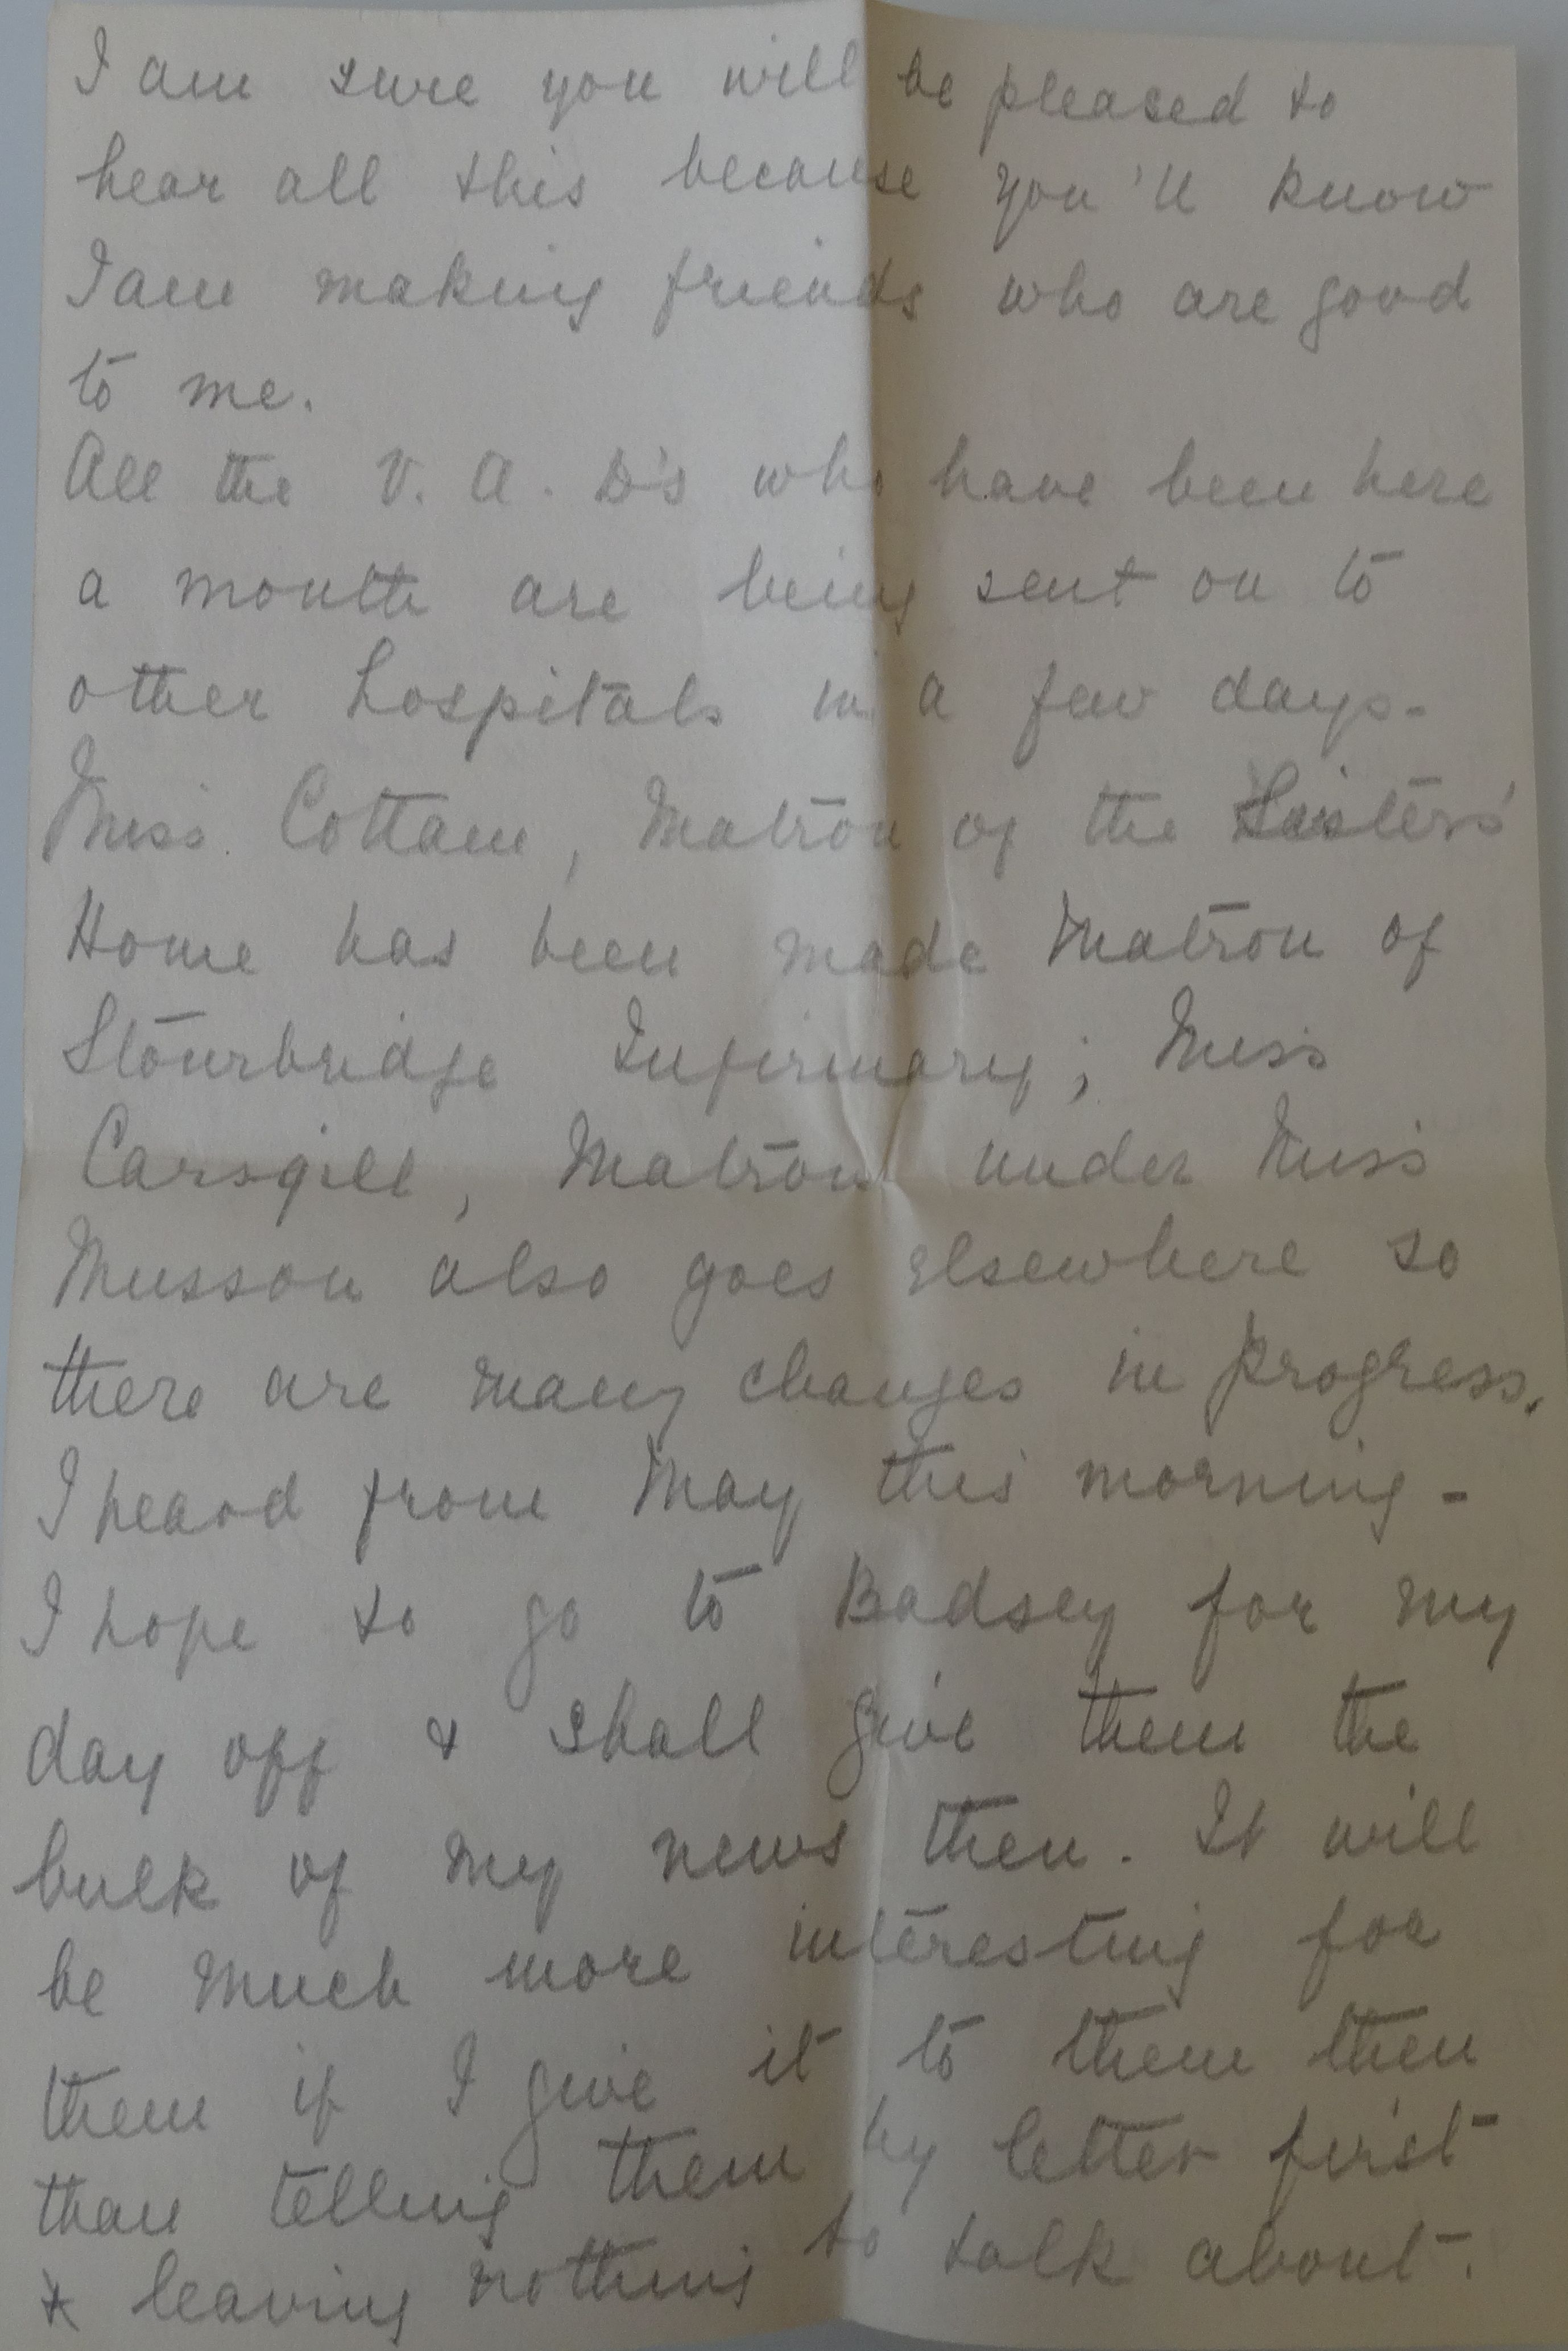 I am sure you will be pleased to
hear all this because you'll know
I am making friends who are good
to me.
All the V. A. D's who have been here
a month are being sent on to
other hospitals in a few days.
Miss Cottam, Matron of the Sisters'
Home has been made Matron of
Stourbridge Infirmary; Miss
Carsgill, Matron under Miss
Musson also goes elsewhere so
there are many changes in progress.
I heard from May this morning -
I hope to go to Badsey for my
day off & shall give them the
bulk of my news then. It will
be much more interesting for
them if I give it to them then
than telling them by letter first
& leaving nothing to talk about.